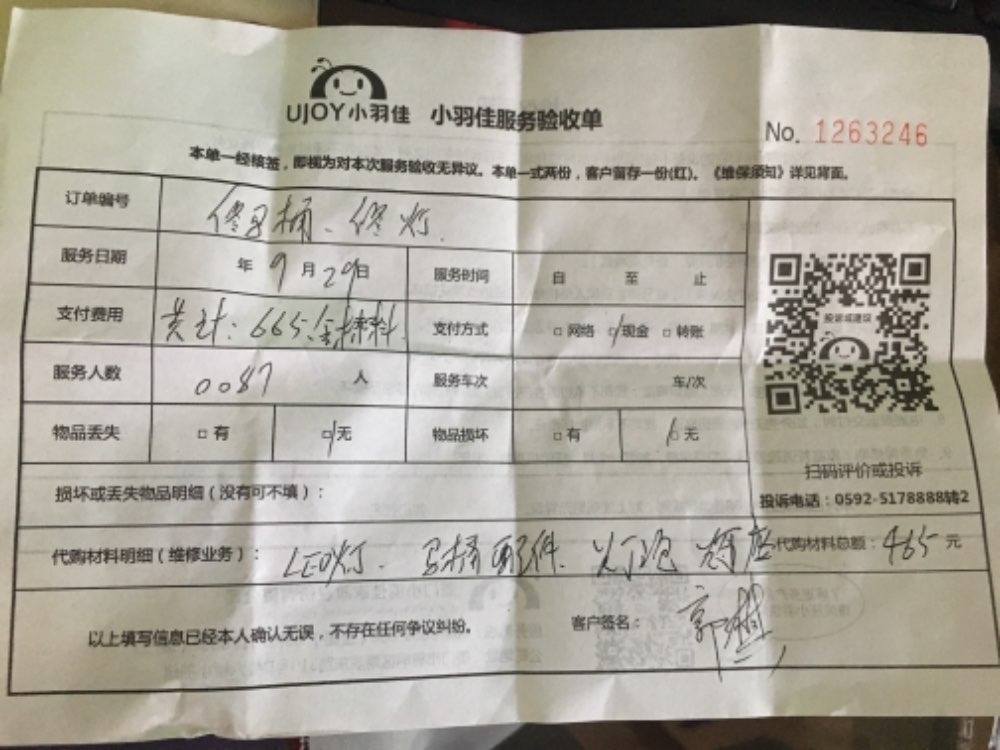 UJOY小羽佳 小羽佳服务验收单
No. 1263246
本单一经核签，即视为对本次服务验收无异议。本单一式两份，客户留存一份(红)。《维保须知》详见背面。
订单编号 修马桶、修灯
服务日期 年 9 月 29 日 服务时间 自 至 止
支付费用 共计：665 含材料 支付方式 □网络 □现金 □转账
服务人数 0087 人 服务车次 车/次
物品丢失 □有 □无 物品损坏 □有 □无
投诉或建议
扫码评价或投诉
投诉电话：0592-5178888转2
损坏或丢失物品明细（没有可不填）：
代购材料明细（维修业务）： LED灯、马桶配件 灯泡 灯座 代购材料总额：465 元
以上填写信息已经本人确认无误，不存在任何争议纠纷。 客户签名： 郭